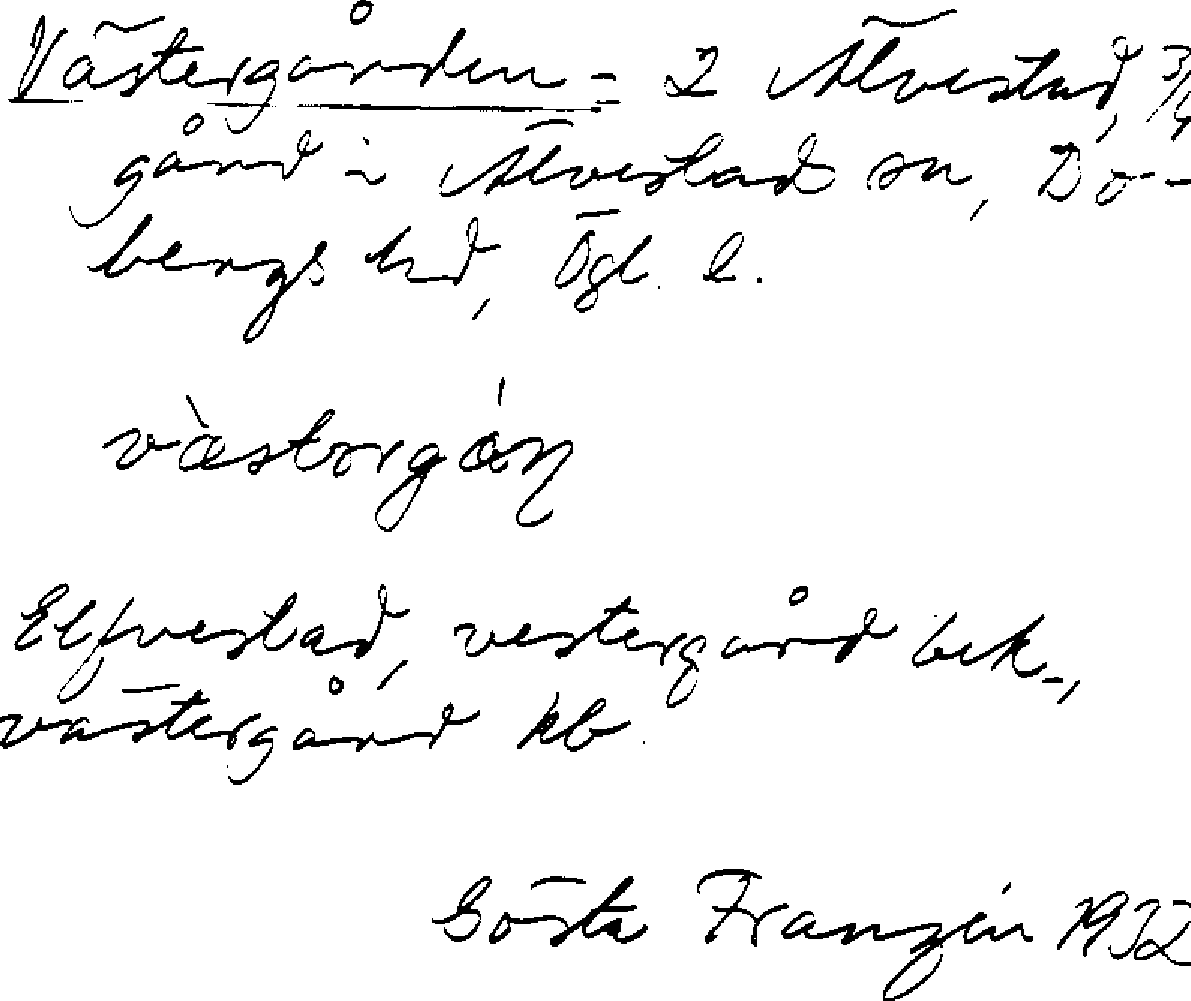 Västergården = 2 Älvestad, 3/4
gård i Älvestads sn, Bo-
bergs hd, Ögl. l.
vàstərgán
Elfvestad, vestergård bek.,
västergård kb.
Gösta Franzén 1932